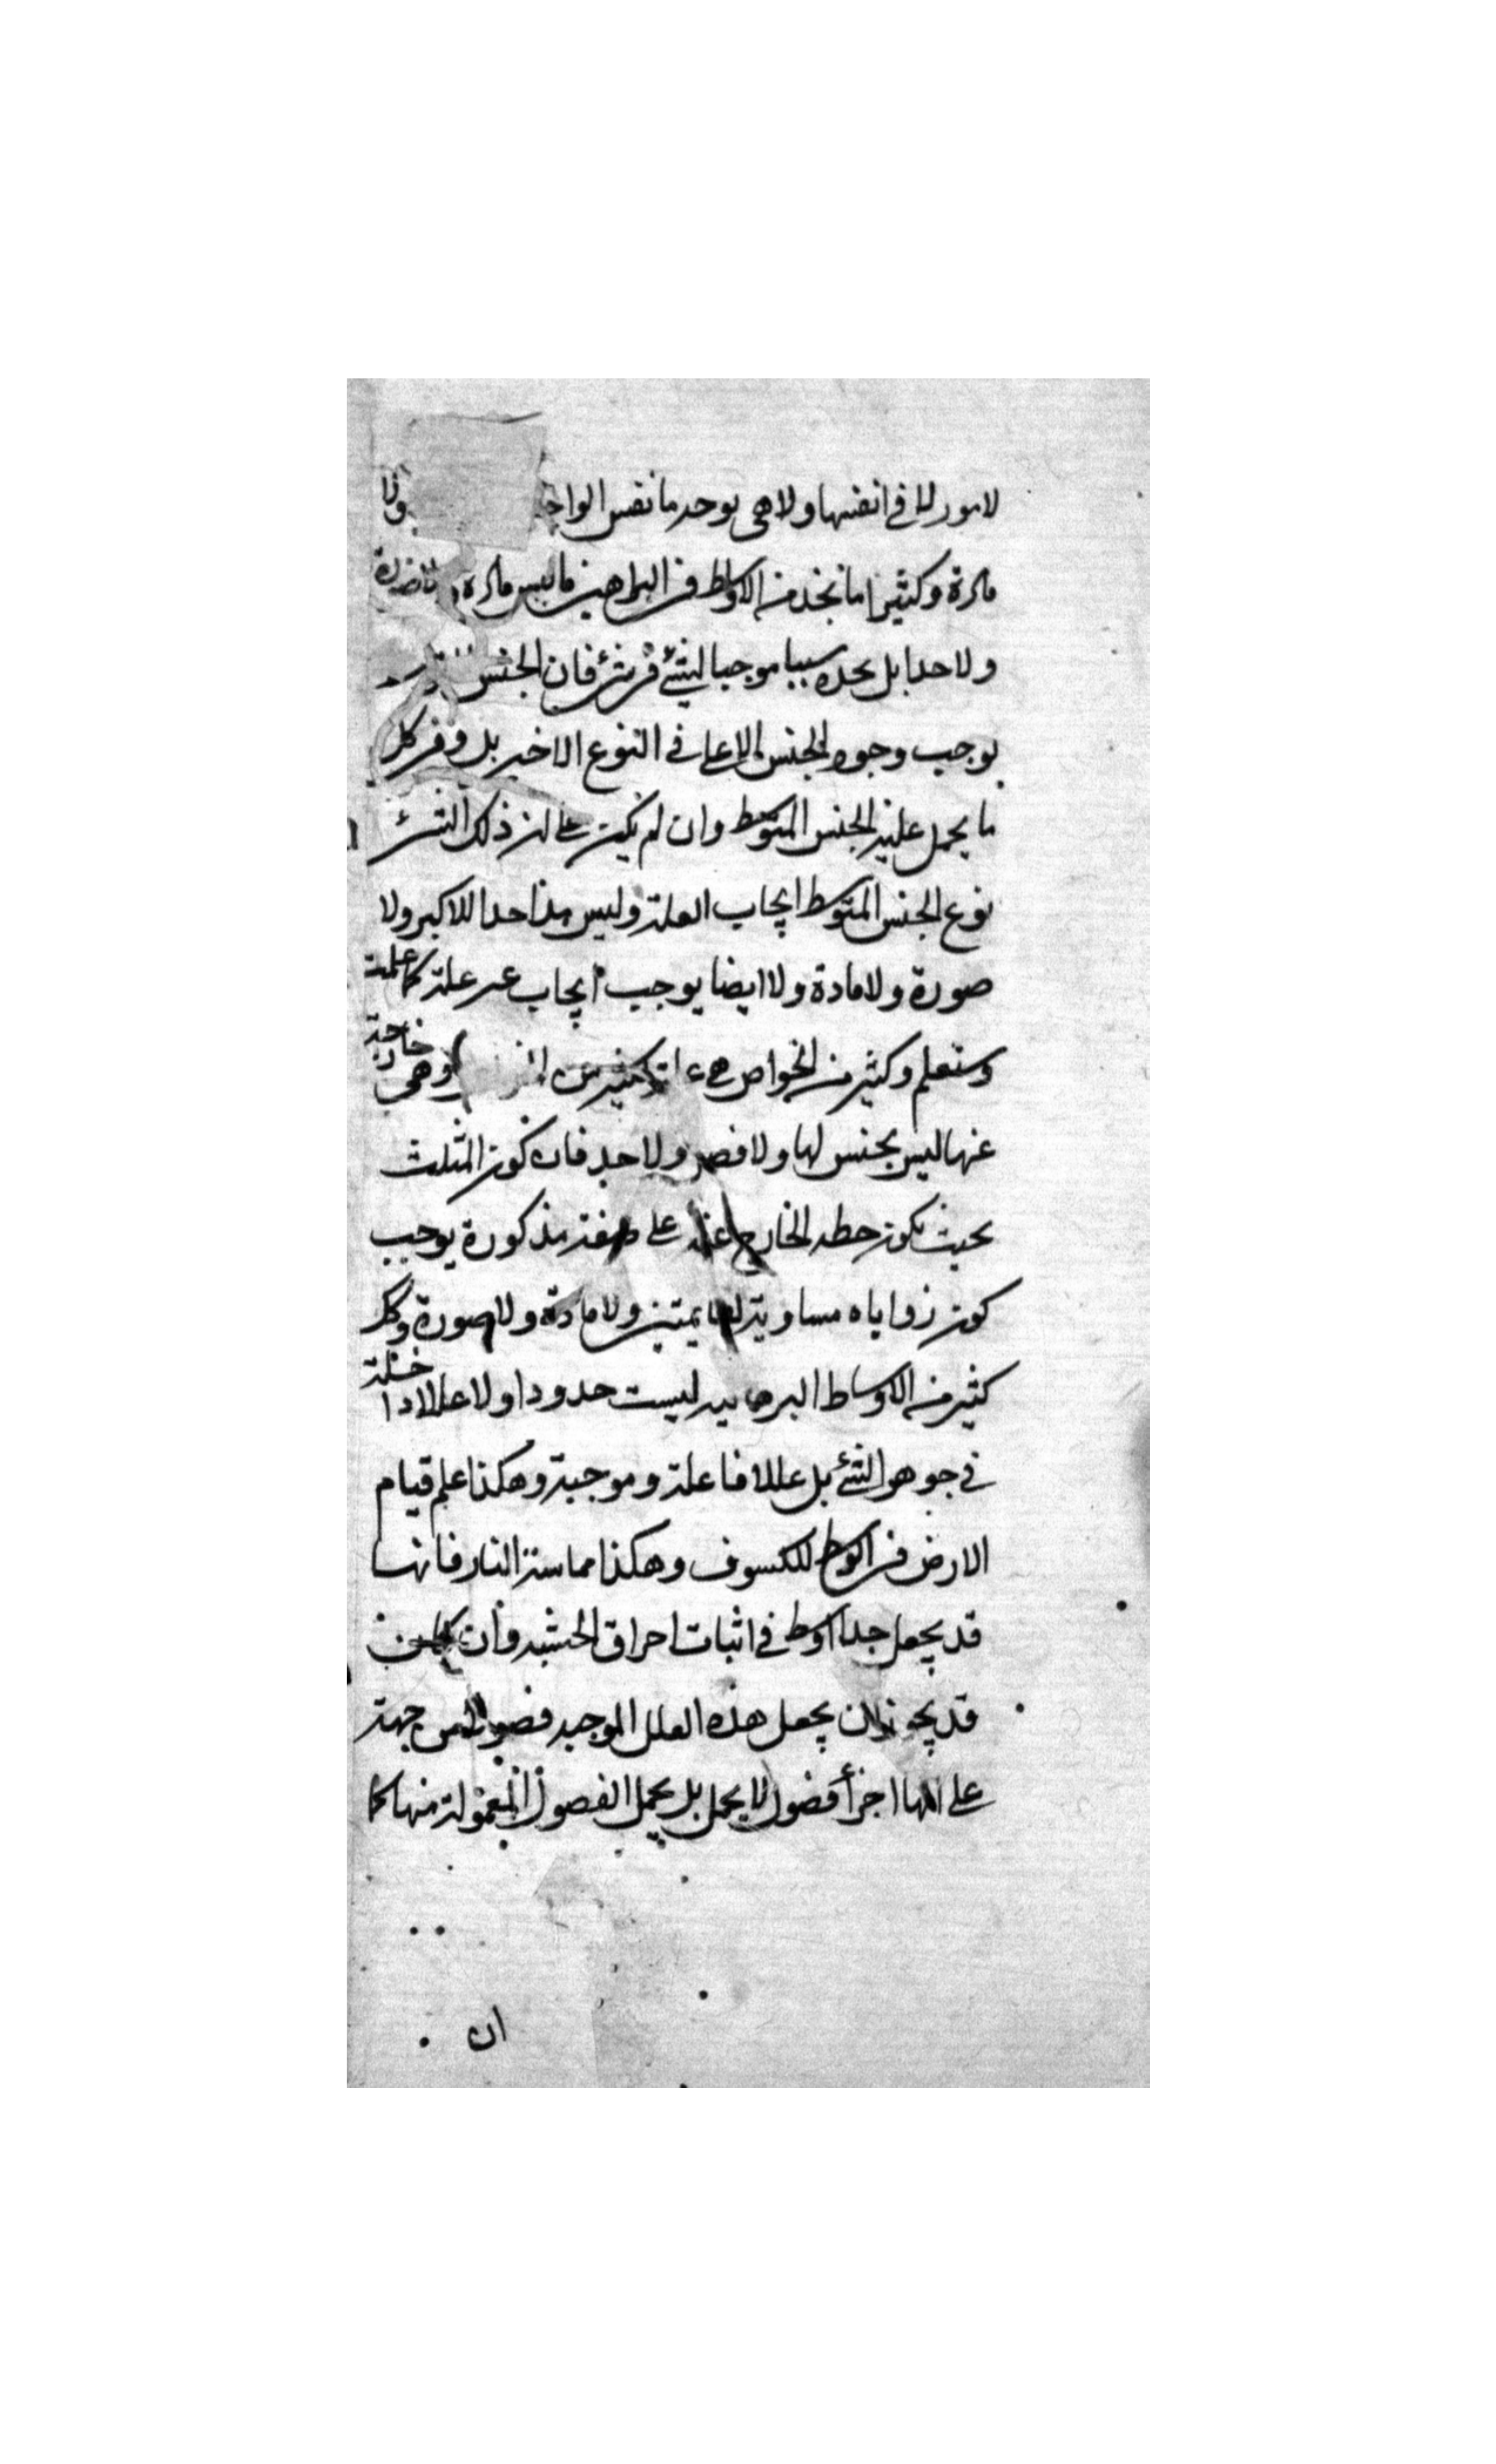 لامور لها في انفسها ولا هي يوجد ما نفس الواحد ولا
مادة وكثيرا ما نجد من الاوساط في البراهين ما ليس مادة ولا صورة
ولا حدا بل نجده سببا موجبا لشئ في شئ فان الجنس
يوجب وجود الجنس الاعلى في النوع الاخير بل وفي كل
ما يحمل عليه الجنس المتوسط وان لم يكن على ان ذلك الشئ
نوع الجنس المتوسط ايجاب العلة وليس هذا حدا للاكبر ولا
صورة ولا مادة ولا ايضا يوجب ايجاب عن علة كما علمت
وستعلم وكثير من الخواص هي علة لكثير من وهى خارجة
عنها ليس بجنس لها ولا فصل ولا حد فان كون المثلث
بحيث يكون خطه الخارج عنه على صفة مذكورة يوجب
كون زواياه مساوية لقايمتين ولا مادة ولا صورة وكل
كثير من الاوساط البرهانية ليست حدودا ولا عللا داخلة
في جوهر الشئ بل عللا فاعلة وموجبة وهكذا علم قيام
الارض في الوسط للكسوف وهكذا مماسة النار فانها
قد يجعل حدا اوسط في اثبات احراق الخشبة وان كان
قد يجوز ان يجعل هذه العلل الموجبة فصولا من جهة
على انها اجزأ فصول لا يحمل بل يحمل الفصول المعمولة منها كما
ان